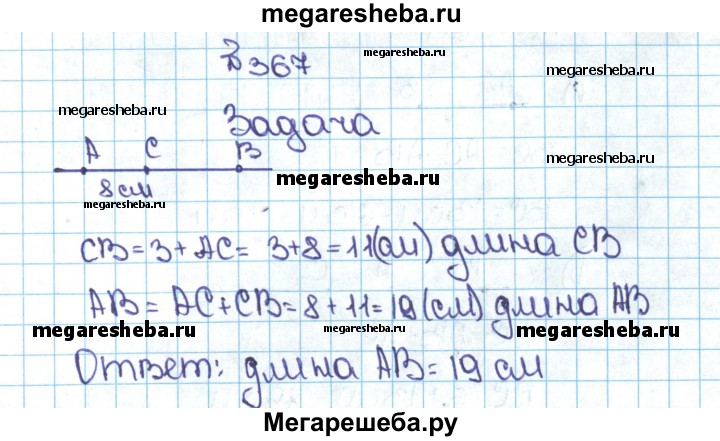 megaresheba.ru
№367
megaresheba.ru
megaresheba.ru
megaresheba.ru
Задача
A C B
megaresheba.ru
megaresheba.ru
8 см
megaresheba.ru
CB = 3 + AC = 3+8 = 11(см) длина CB
AB = AC + CB = 8 + 11 = 19 (см) длина AB
megaresheba.ru
megaresheba.ru
megaresheba.ru
megaresheba.ru
Ответ: длина AB = 19 см
Мегарешеба.ру